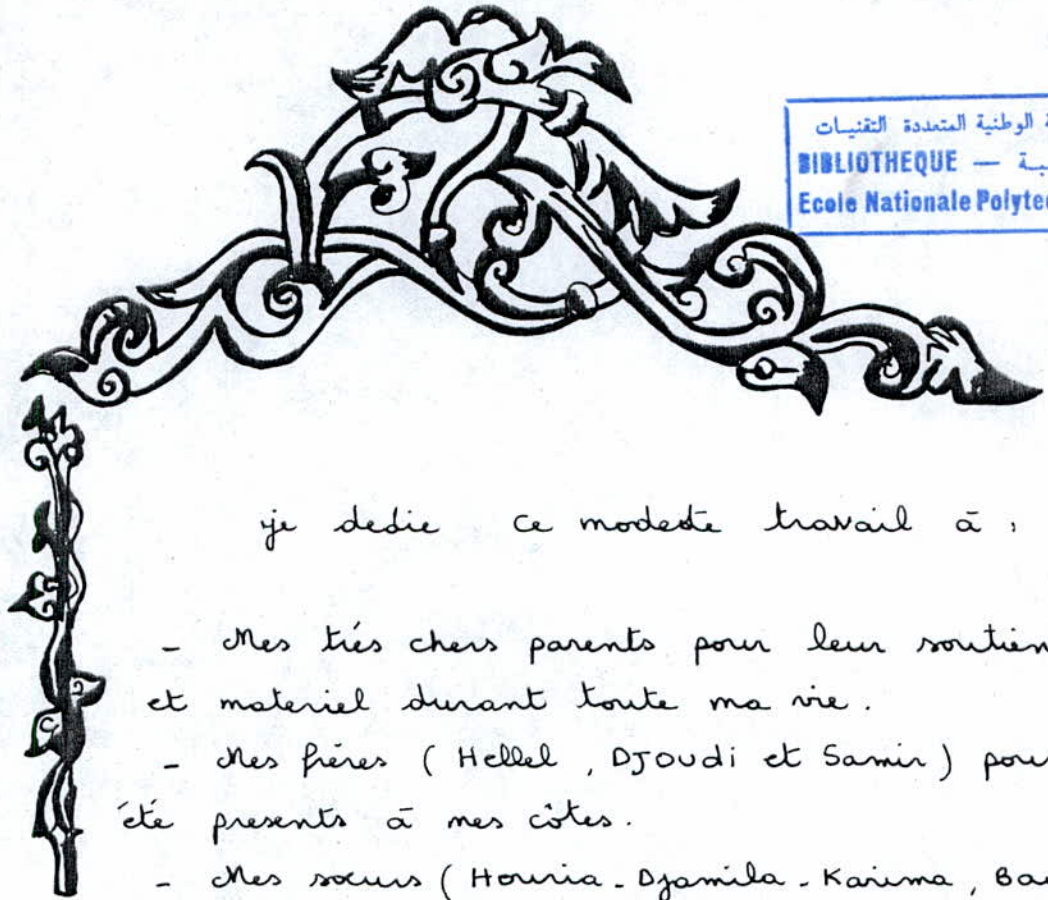 الوطنية المتعددة التقنيات
BIBLIOTHEQUE —
Ecole Nationale
je dedie ce modeste travail à :
- Mes trés chers parents pour leur soutien
et materiel durant toute ma vie.
- Mes frères ( Hellel , DJoudi et Samir )
été presents à mes côtes.
- Mes sœurs ( Houria - Djamila - Karima ,